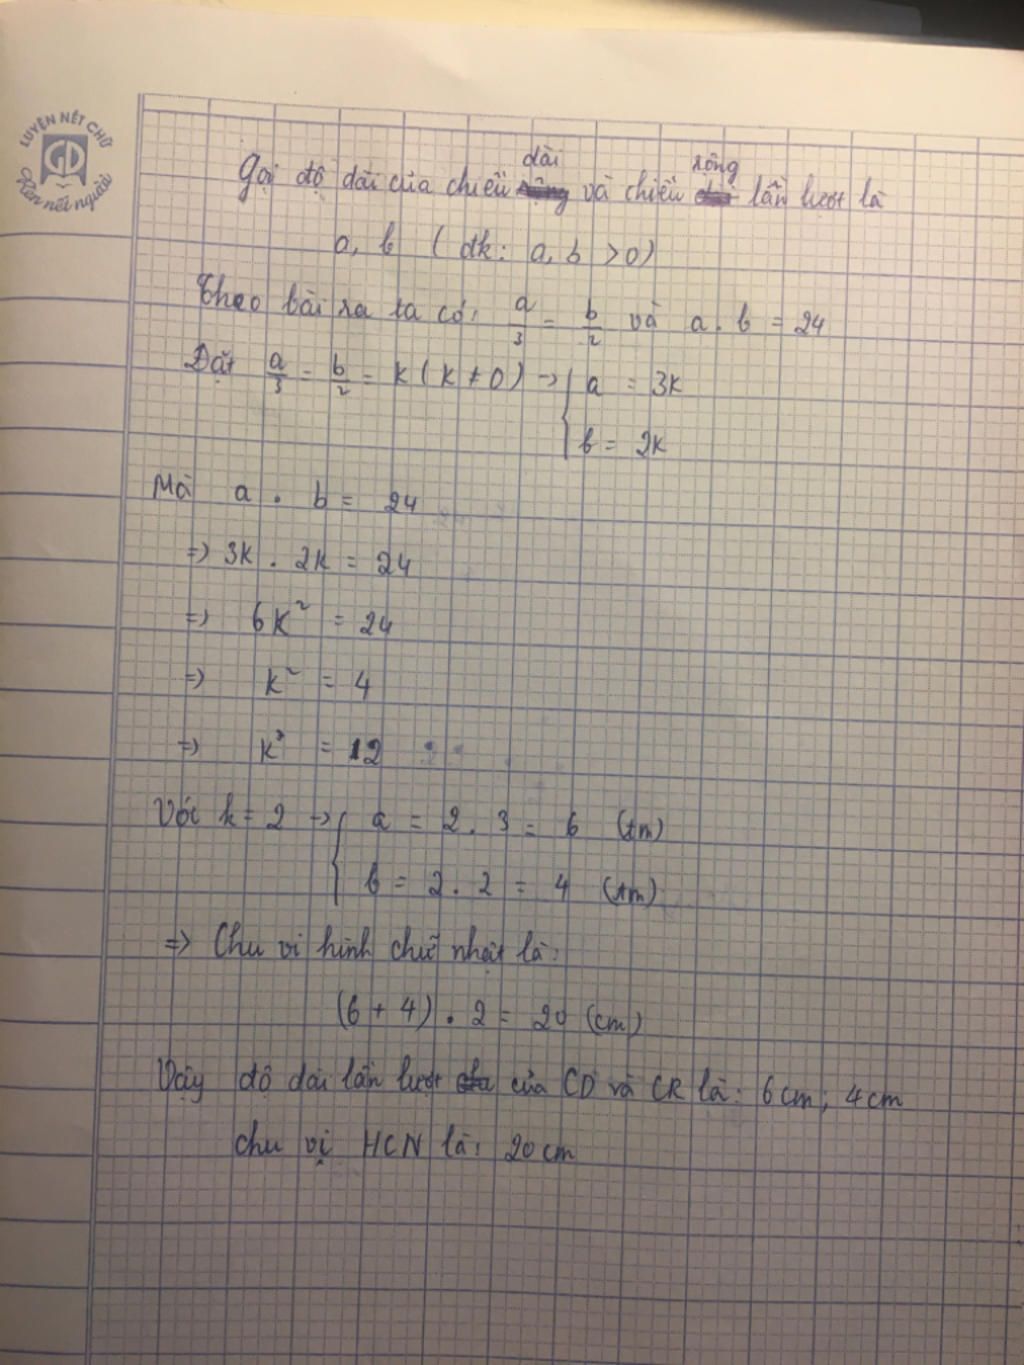 LUYỆN NÉT CHỮ
GD
Rèn nết người
Gọi độ dài của chiều dài và chiều rộng lần lượt là
a, b ( đk: a, b > 0)
Theo bài ra ta có: a/3 = b/2 và a . b = 24
Đặt a/3 = b/2 = k ( k ≠ 0) → { a = 3k
b = 2k
Mà a . b = 24
=> 3k . 2k = 24
=> 6k² = 24
=> k² = 4
=> k² = 12
Với k = 2 → { a = 2 . 3 = 6 (tm)
b = 2 . 2 = 4 (tm)
=> Chu vi hình chữ nhật là:
(6 + 4) . 2 = 20 (cm)
Vậy độ dài lần lượt của CD và CR là: 6cm; 4cm
chu vị HCN là: 20cm